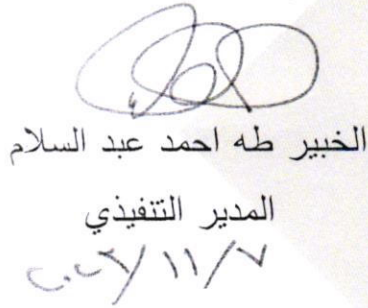 الخبير طه احمد عبد السلام
المدير التنفيذي
٢٠٢٣/١١/٧